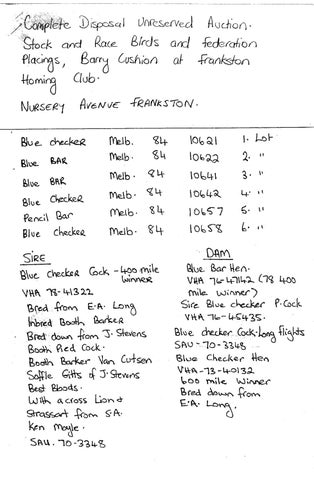 Complete Disposal Unreserved Auction.
Stock and Race Birds and federation
Placings, Barry Cushion at Frankston
Homing Club.
NURSERY AVENUE FRANKSTON.
Blue checker Melb. 84 10621 1. Lot
Blue BAR Melb. 84 10622 2. "
Blue BAR Melb. 84 10641 3. "
Blue Checker Melb. 84 10642 4. "
Pencil Bar Melb. 84 10657 5. "
Blue checker Melb. 84 10658 6. "
SIRE
Blue checker Cock - 400 mile
winner
VHA 78-41322
Bred from E.A. Long
Inbred Booth Barker
Bred down from J. Stevens
Booth Pied Cock.
Booth Barker Van Cutsen
Soffle Gitts of J. Stevens
Best Bloods.
With a cross Lion &
Strassart from S.A.
Ken Moyle.
SAU. 70-3348
DAM
Blue Bar Hen.
VHA 76-47142 (78 400
mile winner)
Sire Blue checker P. Cock
VHA-76-45435.
Blue checker Cock-Long flights
SAU-70-3348
Blue Checker Hen
VHA-73-40132
600 mile Winner
Bred down from
E.A. Long.